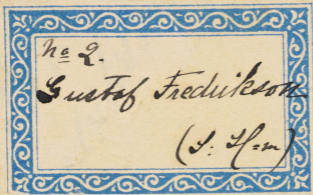 No 2.
Gustaf Fredrikson
(S: H=m)